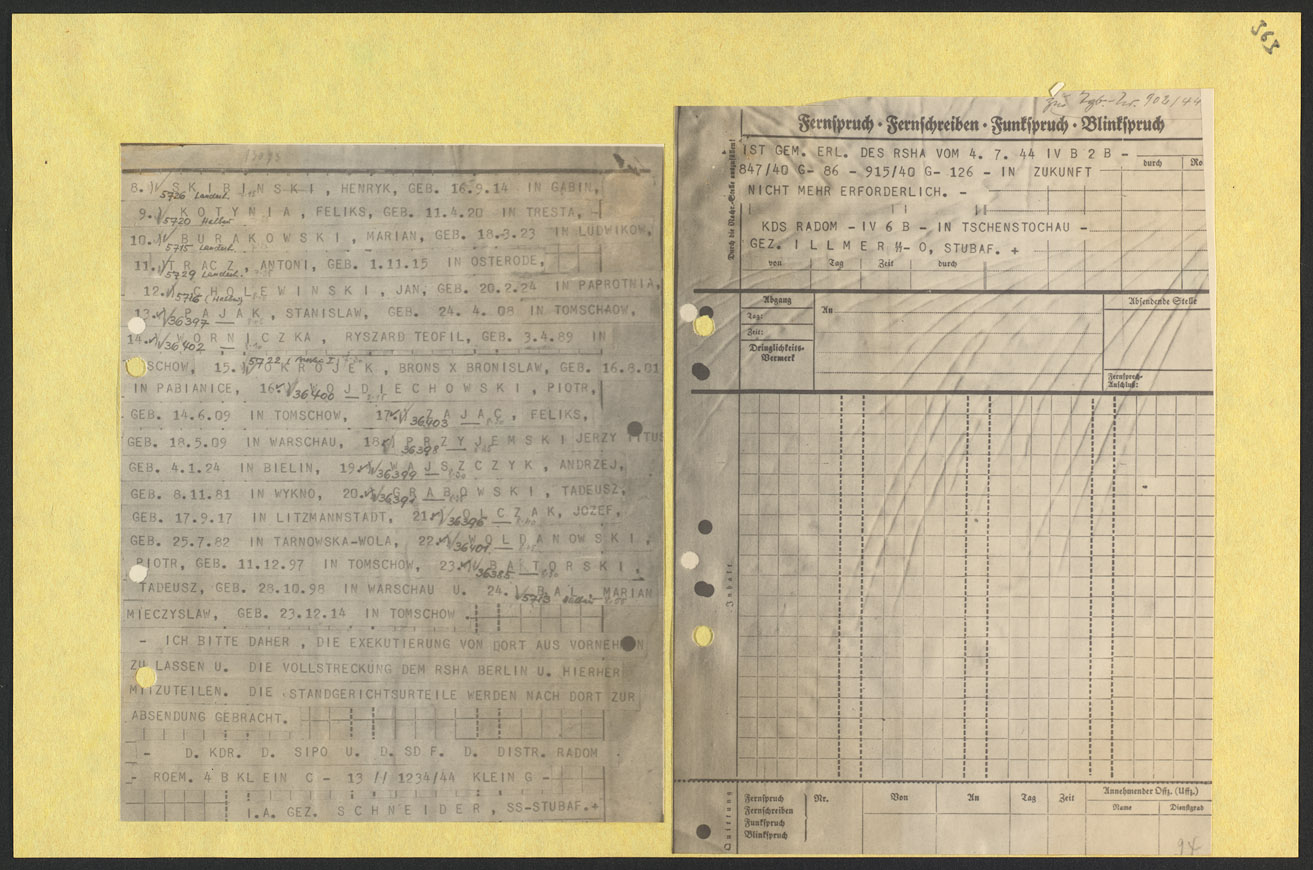 563
8. S K I B I N S K I , HENRYK, GEB. 16.9.14 IN GABIN,
5726
9. K O T Y N I A , FELIKS, GEB. 11.4.20 IN TRESTA, -
5720
10. B U R A K O W S K I , MARIAN, GEB. 18.3.23 IN LUDWIKOW,
5715
11. T R A C Z , ANTONI, GEB. 1.11.15 IN OSTERODE,
5729
12. C H O L E W I N S K I , JAN, GEB. 20.2.24 IN PAPROTNIA,
5716
13. P A J A K , STANISLAW, GEB. 24. 4. 08 IN TOMSCHAOW,
36397
14. W O R N I C Z K A , RYSZARD TEOFIL, GEB. 3.4.89 IN
36402
SCHOW, 15. P O K R O J E K , BRONS X BRONISLAW, GEB. 16.8.01
5722
IN PABIANICE, 16. W O J D I E C H O W S K I , PIOTR,
36400
GEB. 14.6.09 IN TOMSCHOW, 17. Z A J A C , FELIKS,
36403
GEB. 18.5.09 IN WARSCHAU, 18. P R Z Y J E M S K I JERZY TITUS
36398
GEB. 4.1.24 IN BIELIN, 19. W A J S Z C Z Y K , ANDRZEJ,
36399
GEB. 8.11.81 IN WYKNO, 20. G R A B O W S K I , TADEUSZ,
GEB. 17.9.17 IN LITZMANNSTADT, 21. O L C Z A K, JOZEF,
36396
GEB. 25.7.82 IN TARNOWSKA-WOLA, 22. W O L D A N O W S K I ,
36401
PIOTR, GEB. 11.12.97 IN TOMSCHOW, 23. B A T O R S K I ,
36385
TADEUSZ, GEB. 28.10.98 IN WARSCHAU U. 24. B A L , MARIAN
5713
MIECZYSLAW, GEB. 23.12.14 IN TOMSCHOW .
- ICH BITTE DAHER , DIE EXEKUTIERUNG VON DORT AUS VORNEHMEN
ZU LASSEN U. DIE VOLLSTRECKUNG DEM RSHA BERLIN U. HIERHER
MITZUTEILEN. DIE STANDGERICHTSURTEILE WERDEN NACH DORT ZUR
ABSENDUNG GEBRACHT.
- D. KDR. D. SIPO U. D. SD F. D. DISTR. RADOM
- ROEM. 4 B KLEIN C - 13 // 1234/44 KLEIN G -
I.A. GEZ. S C H N E I D E R , SS-STUBAF.+
zu Tgb.-Nr. 902/44
Fernspruch · Fernschreiben · Funkspruch · Blinkspruch
IST GEM. ERL. DES RSHA VOM 4. 7. 44 IV B 2 B -
durch
847/40 G- 86 - 915/40 G- 126 - IN ZUKUNFT
NICHT MEHR ERFORDERLICH. -
KDS RADOM - IV 6 B - IN TSCHENSTOCHAU -
GEZ. I L L M E R ᛋᛋ- O, STUBAF. +
von Tag Zeit durch
Abgang
An
Absendende Stelle
Tag:
Zeit:
Dringlichkeits-
Vermerk
Fernsprech-
Anschluß:
Inhalt
Quittung
Fernspruch
Fernschreiben
Funkspruch
Blinkspruch
Nr.
Von
An
Tag
Zeit
Annehmender Offz. (Uffz.)
Name
Dienstgrad
94